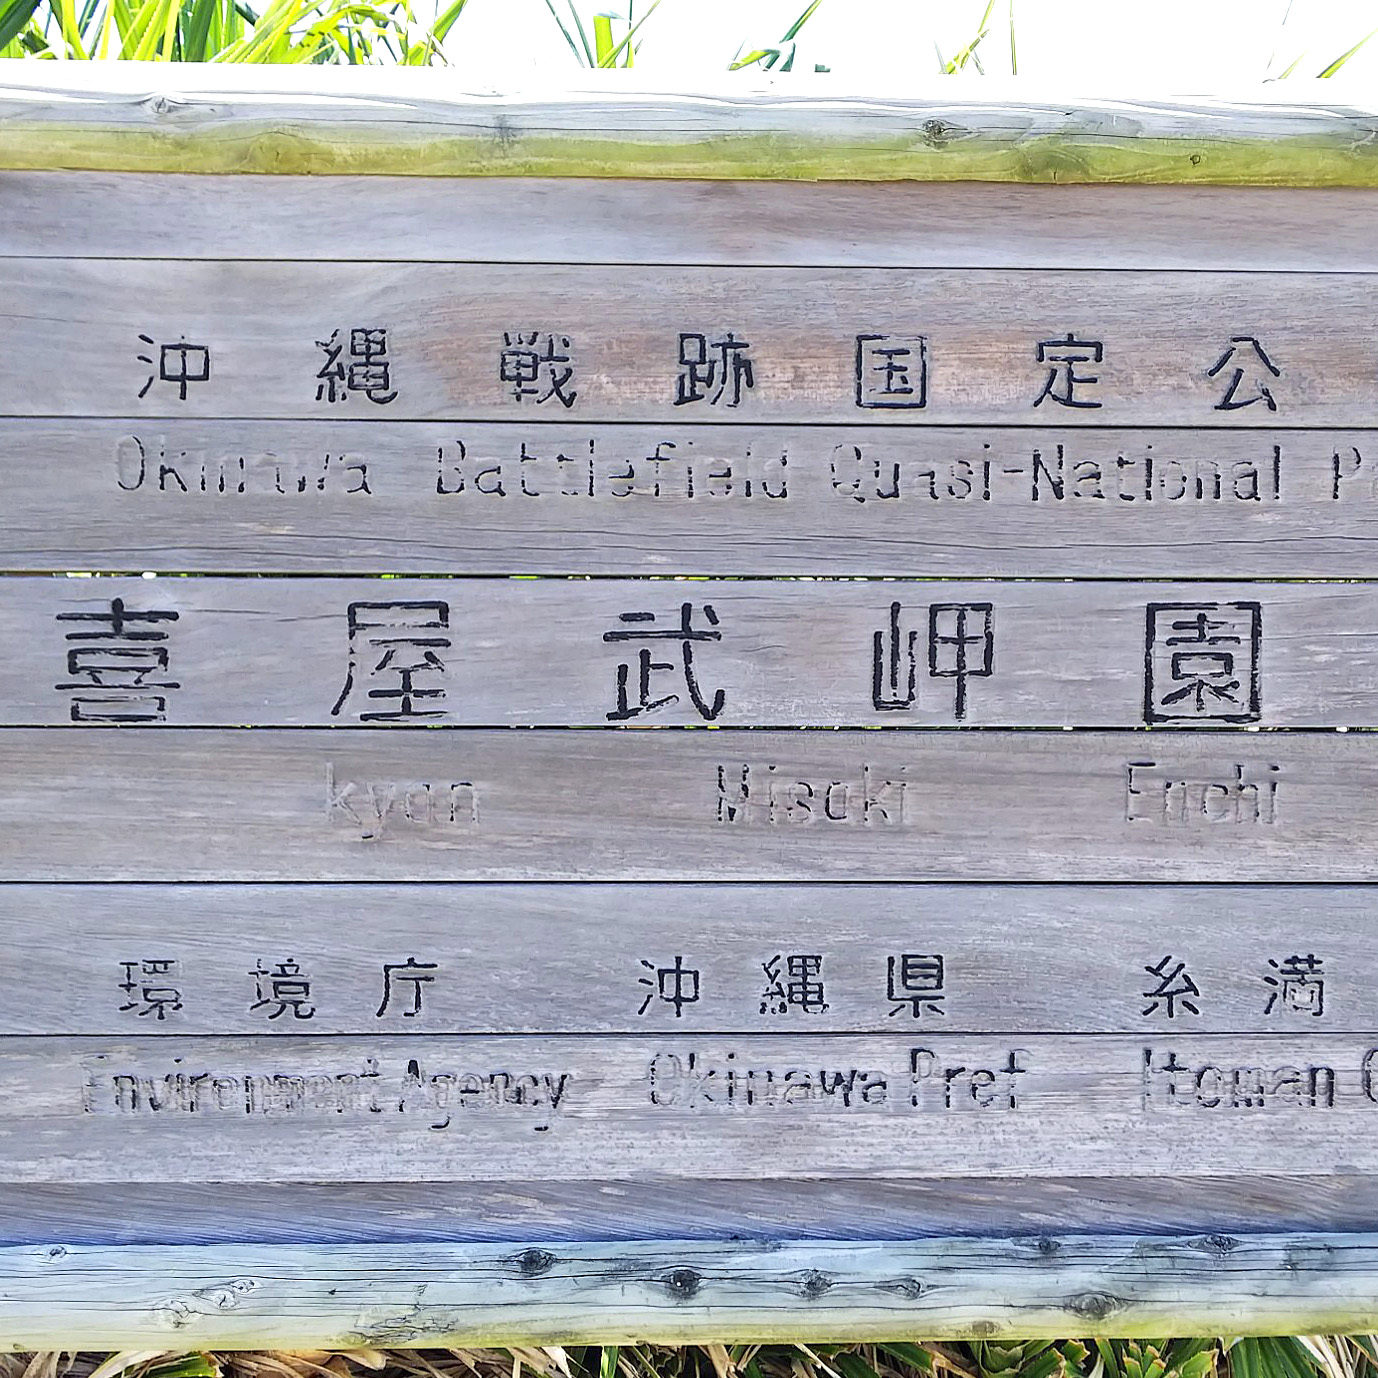 沖縄戦跡国定公
Okinawa Battlefield Quasi-National
喜屋武岬園
kyan Misaki Enchi
環境庁 沖縄県 糸満
Environment Agency Okinawa Pref Itoman